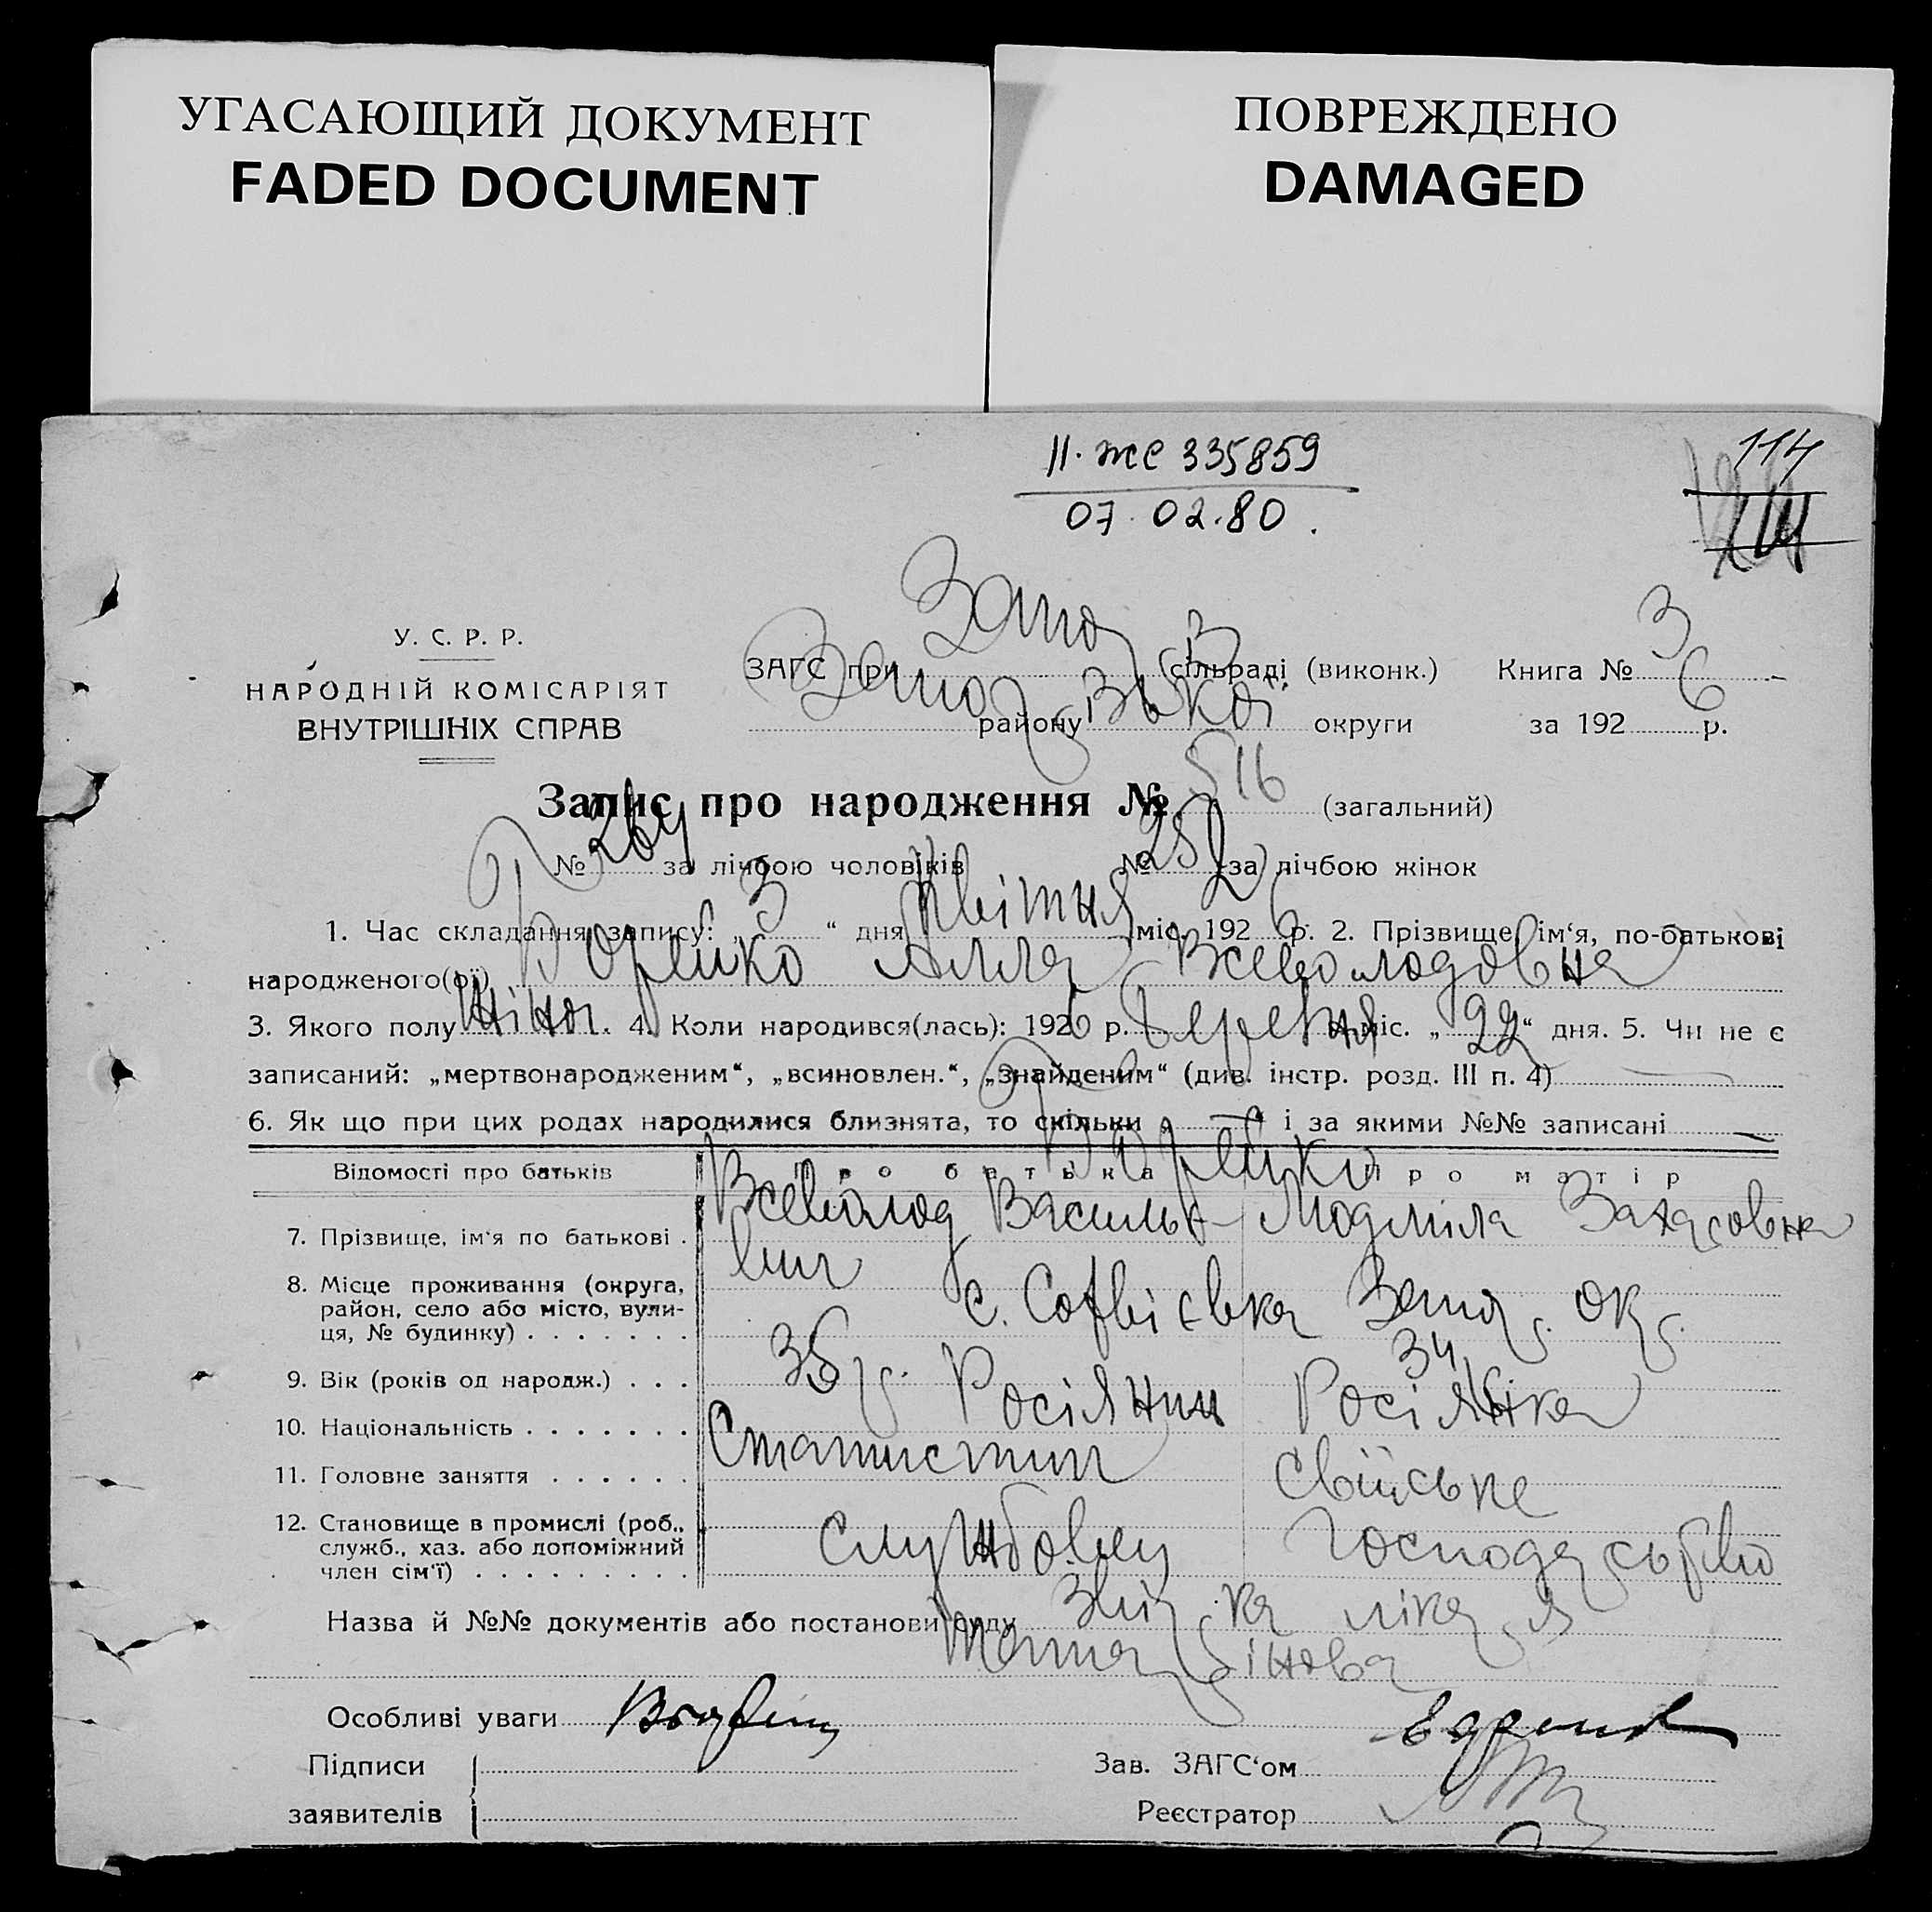 УГАСАЮЩИЙ ДОКУМЕНТ
FADED DOCUMENT
ПОВРЕЖДЕНО
DAMAGED
II. ЖС 335859
07.02.80.
114
У. С. Р. Р.
НАРОДНІЙ КОМІСАРІЯТ
ВНУТРІШНІХ СПРАВ
ЗАГС при Запор сільраді (виконк.) Книга № 3
Запор району округи за 1926 р.
Запис про народження № 516 (загальний)
№ 264 за лічбою чоловіків № 252 за лічбою жінок
1. Час складання запису: „3“ дня Квітня міс. 1926 р. 2. Прізвище, ім‘я, по-батькові
народженого(ої) Горейко Алла Всеволодовна
3. Якого полу Жіноч. 4. Коли народився(лась): 1926 р. Березня міс. „22“ дня. 5. Чи не є
записаний: „мертвонародженим“, „всиновлен.“, „знайденим“ (див. інстр. розд. III п. 4)
6. Як що при цих родах народилися близнята, то скільки „—“ і за якими №№ записані —
Відомості про батьків Про батька Про матір
7. Прізвище, ім‘я по батькові . Горейко
Всеволод Василь- Людміла Захаровна
вич
8. Місце проживання (округа,
район, село або місто, вули-
ця, № будинку) . . . . . . . с. Софієвка Запор. окр.
9. Вік (років од народж.) . . . 35 р. 34
10. Національність . . . . . . . Росіянин Росіянка
11. Головне заняття . . . . . . Статистик Свійське
12. Становище в промислі (роб.,
служб., хаз. або допоміжний
член сім‘ї) . . . . . . . . . Службовец Господарство
Назва й №№ документів або постанови суду лікаря
Особливі уваги
Підписи
заявителів
Зав. ЗАГС‘ом
Реєстратор